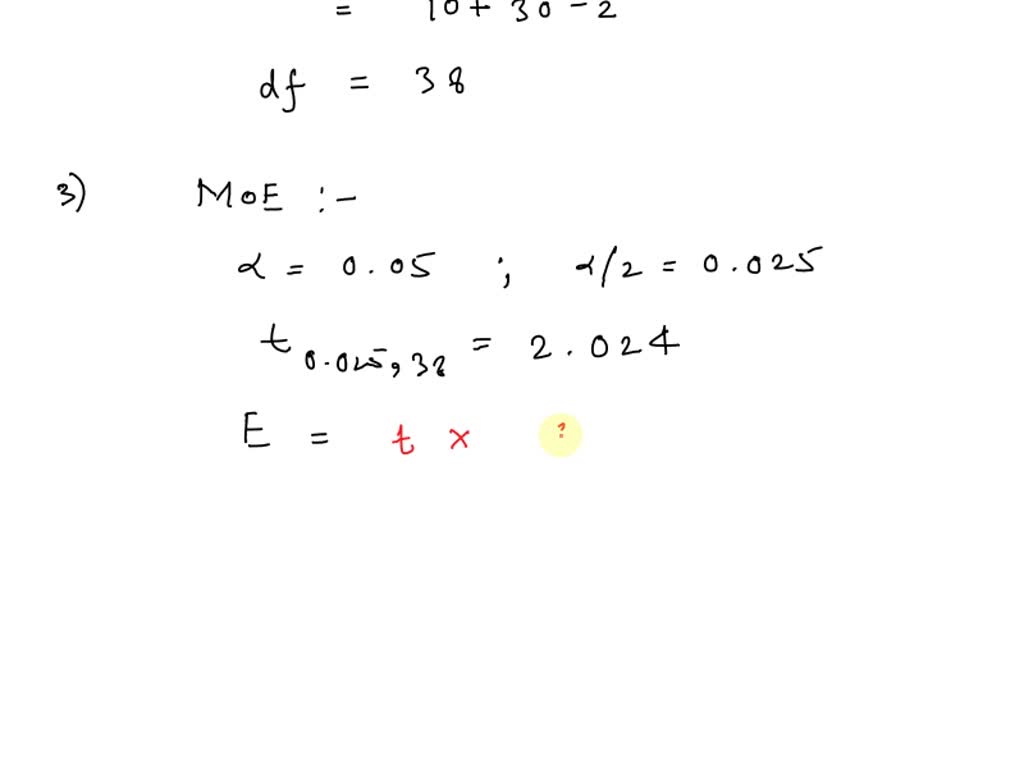 = 10 + 30 - 2
df = 38
3) MoE :-
α = 0.05 ; α/2 = 0.025
t 0.025, 38 = 2.024
E = t × ?